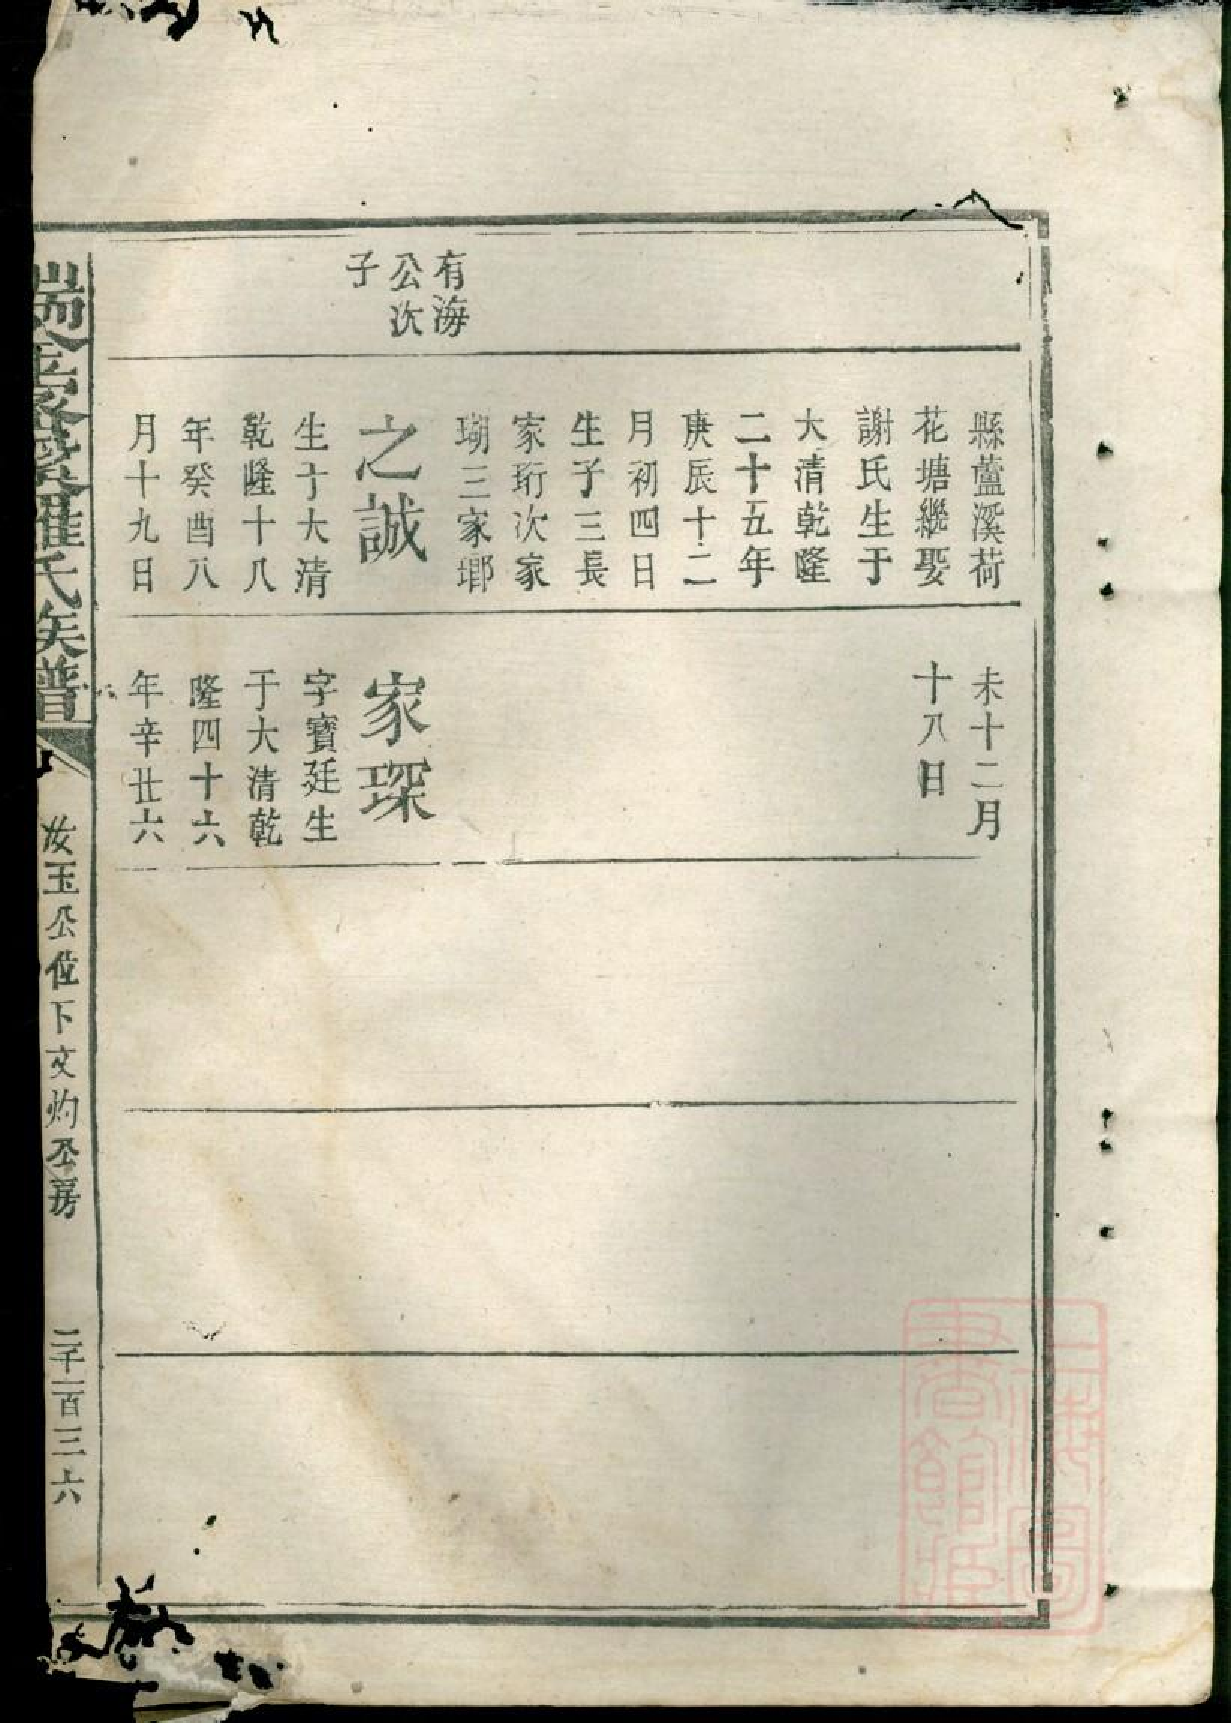 有海
公次
子
縣蘆溪荷
花塘繼娶
謝氏生于
大清乾隆
二十五年
庚辰十二
月初四日
生子三長
家珩次家
瑚三家瑯
之誠
生于大清
乾隆十八
年癸酉八
月十九日
未十二月
十八日
家琛
字寶廷生
于大清乾
隆四十六
年辛丑六
羅氏族譜
汝玉公位下文灼公房
二千一百三六
上海圖
書館藏